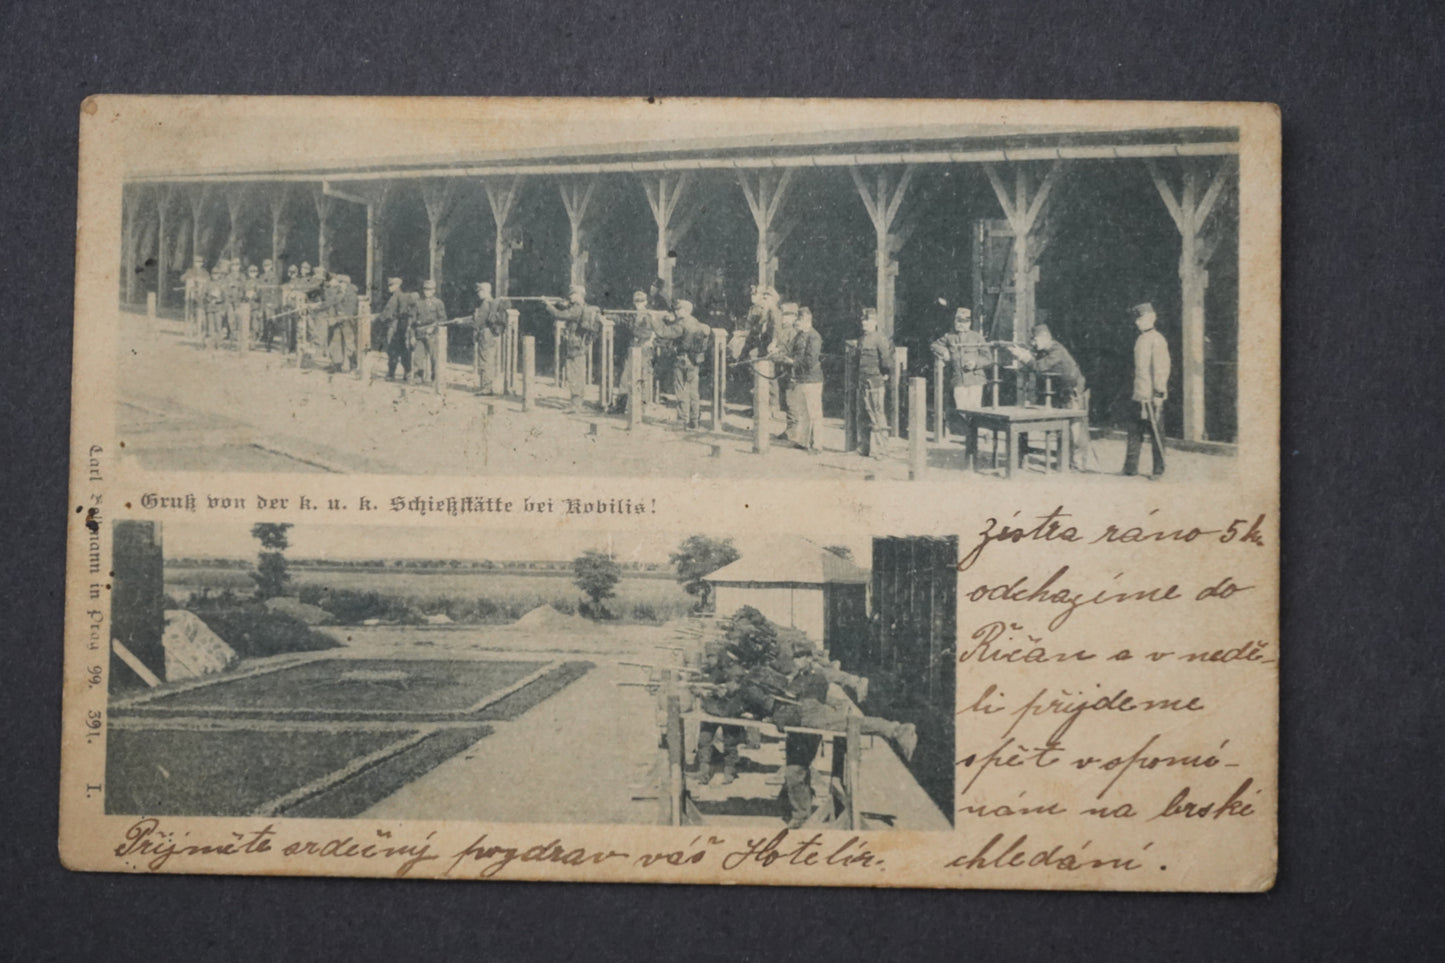 Gruß von der k. u. k. Schießstätte bei Kobilis!
Carl Bellmann in Prag 99. 391. I.
zístra ráno 5 h.
odchazíme do
Řičan a v nedě-
li přijdeme
spět vspomí-
nám na brské
chledání.
Přijměte srdečný pozdrav váš Hotelír.